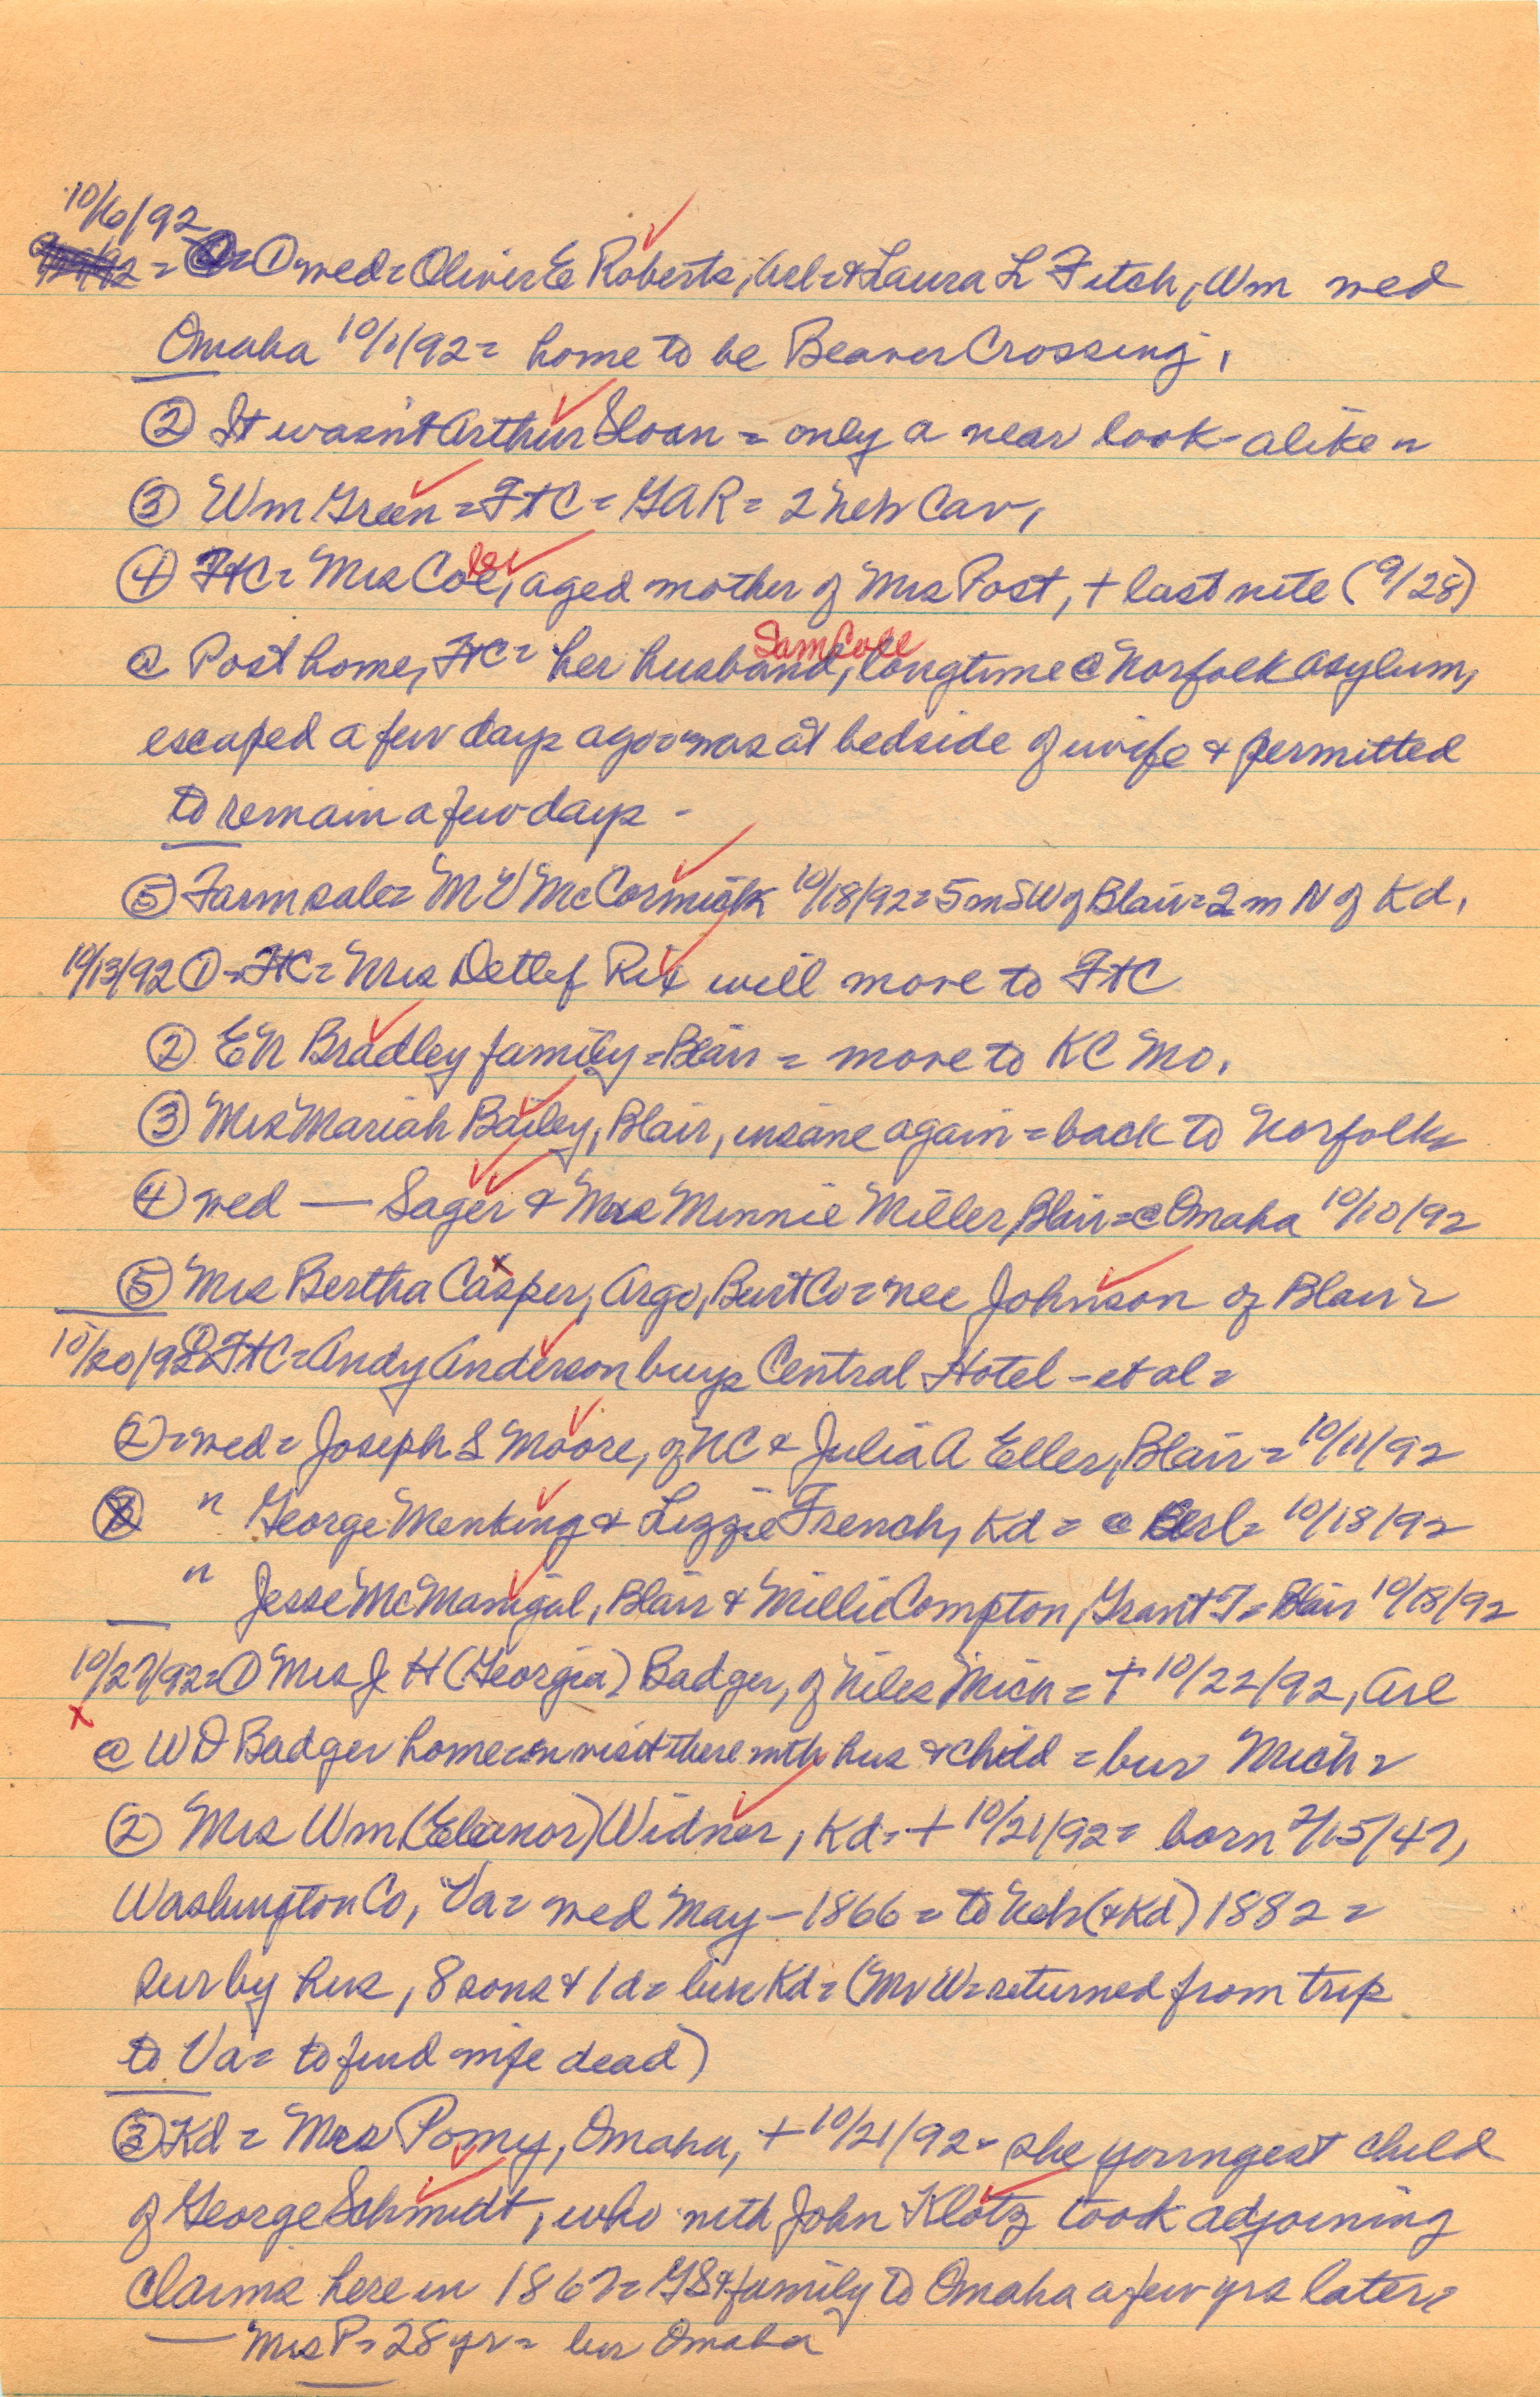 10/6/92
= ① wed = Oliver E Roberts, Arl = & Laura L Fitch, Wm wed
Omaha 10/1/92 = home to be Beaver Crossing,
② It wasn't Arthur Sloan = only a near look-alike =
③ Wm Green = FtC = GAR = 2 Neb Cav,
④ FtC = Mrs Cole, aged mother of Mrs Post, + last nite (9/28)
Sam Cole
@ Post home, FtC = her husband, longtime @ Norfolk asylum,
escaped a few days ago = was at bedside of wife & permitted
to remain a few days -
⑤ Farm sale = M V McCormick 10/18/92 = 5 m SW of Blair = 2 m N of Kd,
10/13/92 ① - FtC = Mrs Detlef Rix will move to FtC
② EN Bradley family = Blair = move to KC Mo,
③ Mrs Mariah Bailey, Blair, insane again = back to Norfolk
④ wed — Sager & Mrs Minnie Miller, Blair = @ Omaha 10/10/92
⑤ Mrs Bertha Casper, Argo, Burt Co = nee Johnson of Blair =
10/20/92 ① = FtC = Andy Anderson buys Central Hotel - et al =
② = wed = Joseph S Moore, of NC & Julia A Eller, Blair = 10/11/92
" George Menking & Lizzie French, Kd = @ Arl = 10/18/92
" Jesse McManigal, Blair & Millie Compton, Grant T = Blair 10/18/92
10/27/92 = ① Mrs J H (Georgia) Badger, of Niles Mich = + 10/22/92, Arl
x @ W D Badger home = on visit there with hus & child = bur Mich =
② Mrs Wm (Eleanor) Widner, Kd = + 10/21/92 = born 2/15/47,
Washington Co, Va = wed May - 1866 = to Neb (& Kd) 1882 =
sur by hus, 8 sons & 1 d = bur Kd = (Mr W = returned from trip
to Va = to find wife dead)
③ Kd = Mrs Pomy, Omaha, + 10/21/92 - she youngest child
of George Schmidt, who with John Klotz took adjoining
claims here in 1867 = GS & family to Omaha a few yrs later =
— Mrs P = 28 yr = bur Omaha